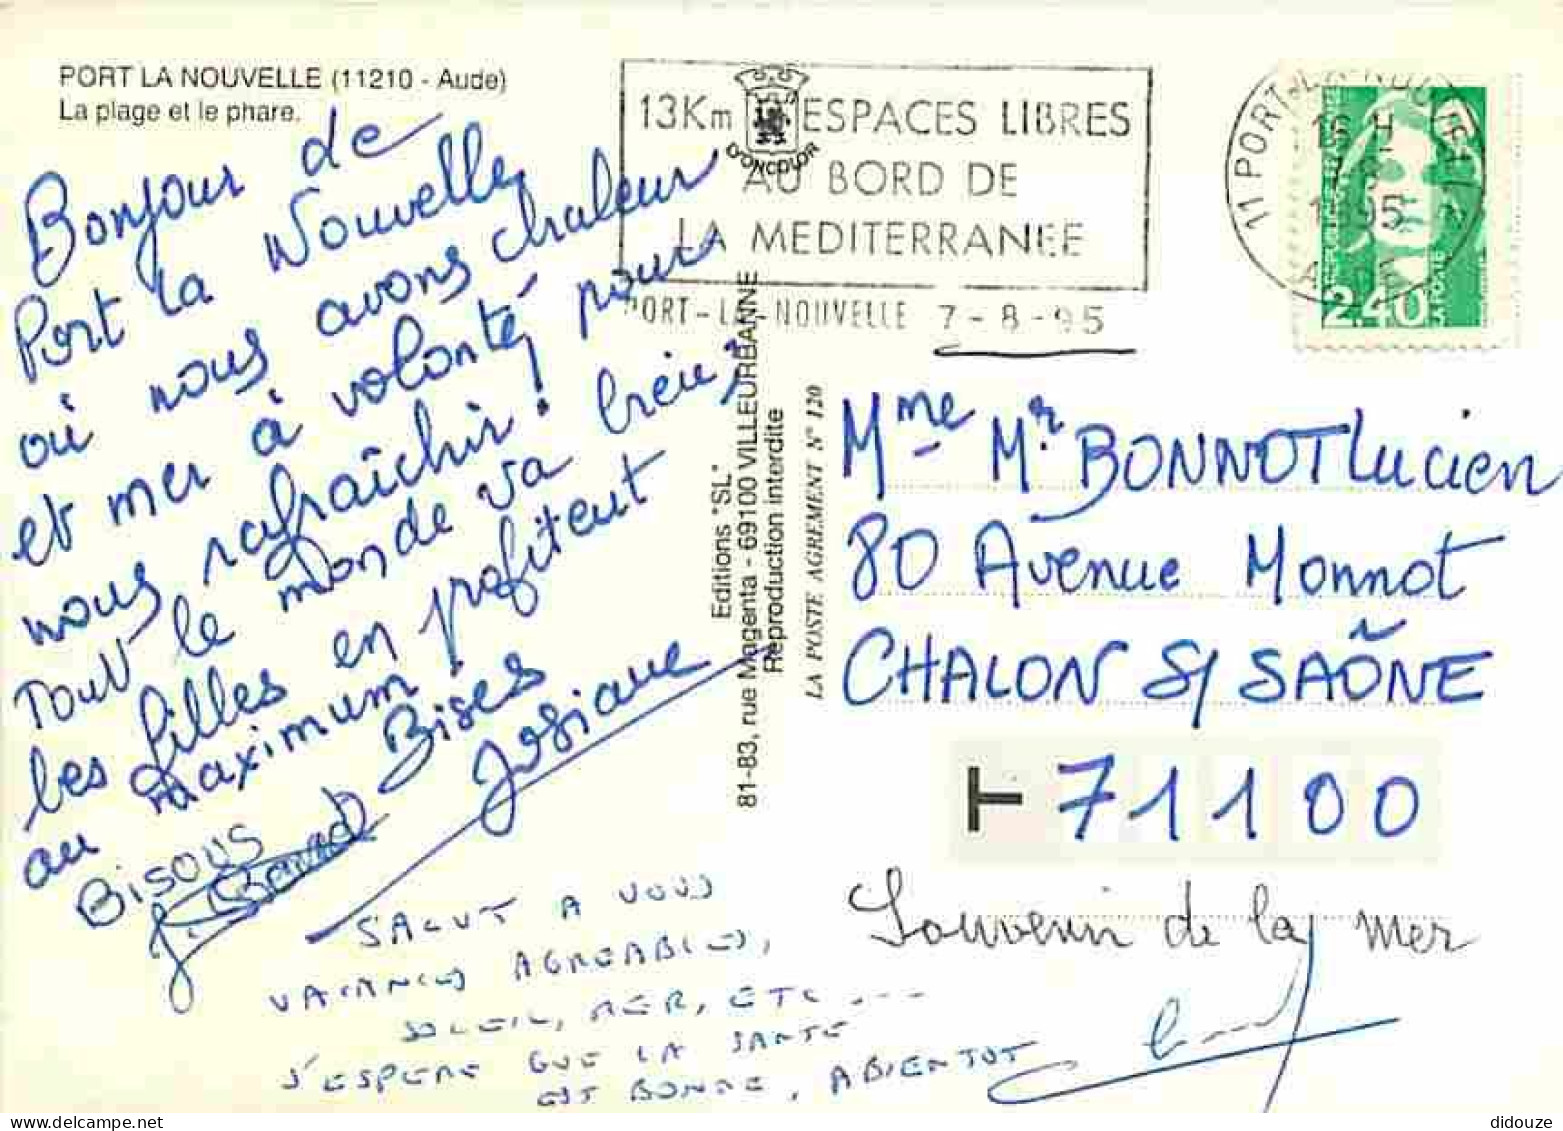 PORT LA NOUVELLE (11210 - Aude)
La plage et le phare.
Bonjour de
Port la Nouvelle
où nous avons chaleur
et mer à volonté pour
nous rafraîchir !
Tout le monde va bien,
les filles en profitent
au maximum !
Bises
Josiane
Bisous
SALUT A VOUS
VACANCES AGREABLES,
SOLEIL, MER, ETC ...--
J'ESPERE QUE LA SANTE
EST BONNE, ABIENTOT
Editions "SL"
81-83, rue Magenta - 69100 VILLEURBANNE
Reproduction interdite
LA POSTE AGREMENT N° 120
D'ONCOLOR
13Km ESPACES LIBRES
AU BORD DE
LA MEDITERRANEE
PORT-LA-NOUVELLE 7-8-95
11 PORT-LA-NOUVELLE
16 H
1995
AUDE
2,40
LA POSTE
Mme Mr BONNOT Lucien
80 Avenue Monnot
CHALON S/ SAÔNE
T 71100
Souvenir de la mer
didouze